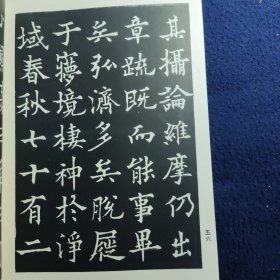 其攝論維摩仍出
章疏既而能事畢
矣弘濟多矣脫屣
于㝱境棲神於淨
域春秋七十有二
五六